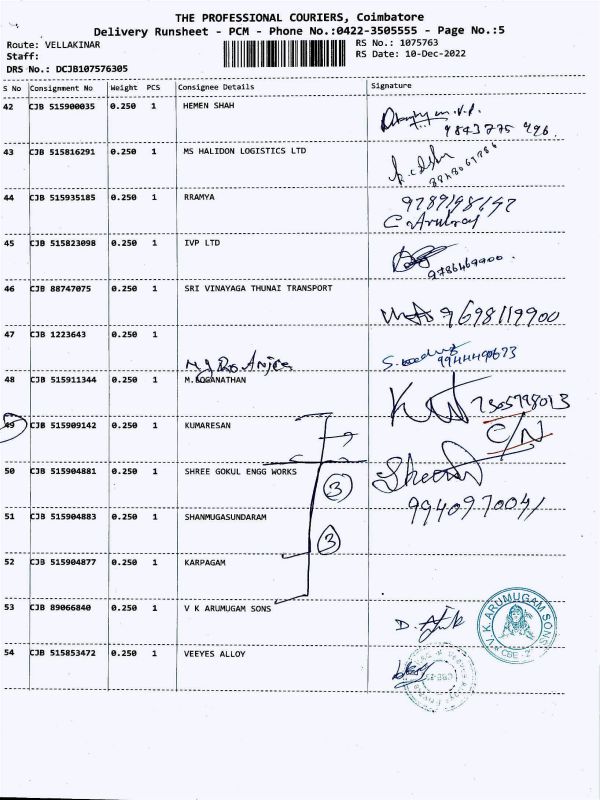 THE PROFESSIONAL COURIERS, Coimbatore
Delivery Runsheet - PCM - Phone No.:0422-3505555 - Page No.:5
Route: VELLAKINAR RS No.: 1075763
Staff: RS Date: 10-Dec-2022
DRS No.: DCJB107576305
S No Consignment No Weight PCS Consignee Details Signature
42 CJB 515900035 0.250 1 HEMEN SHAH
9843775 496
43 CJB 515816291 0.250 1 MS HALIDON LOGISTICS LTD
44 CJB 515935185 0.250 1 RRAMYA
45 CJB 515823098 0.250 1 IVP LTD
9786469900
46 CJB 88747075 0.250 1 SRI VINAYAGA THUNAI TRANSPORT
9698119900
47 CJB 1223643 0.250 1
48 CJB 515911344 0.250 1 M.LOGANATHAN
7305798013
C/N
49 CJB 515909142 0.250 1 KUMARESAN
50 CJB 515904881 0.250 1 SHREE GOKUL ENGG WORKS
3
9940970041
51 CJB 515904883 0.250 1 SHANMUGASUNDARAM
3
52 CJB 515904877 0.250 1 KARPAGAM
53 CJB 89066840 0.250 1 V K ARUMUGAM SONS
D.
V.K. ARUMUGAM SONS
CBE-2
54 CJB 515853472 0.250 1 VEEYES ALLOY